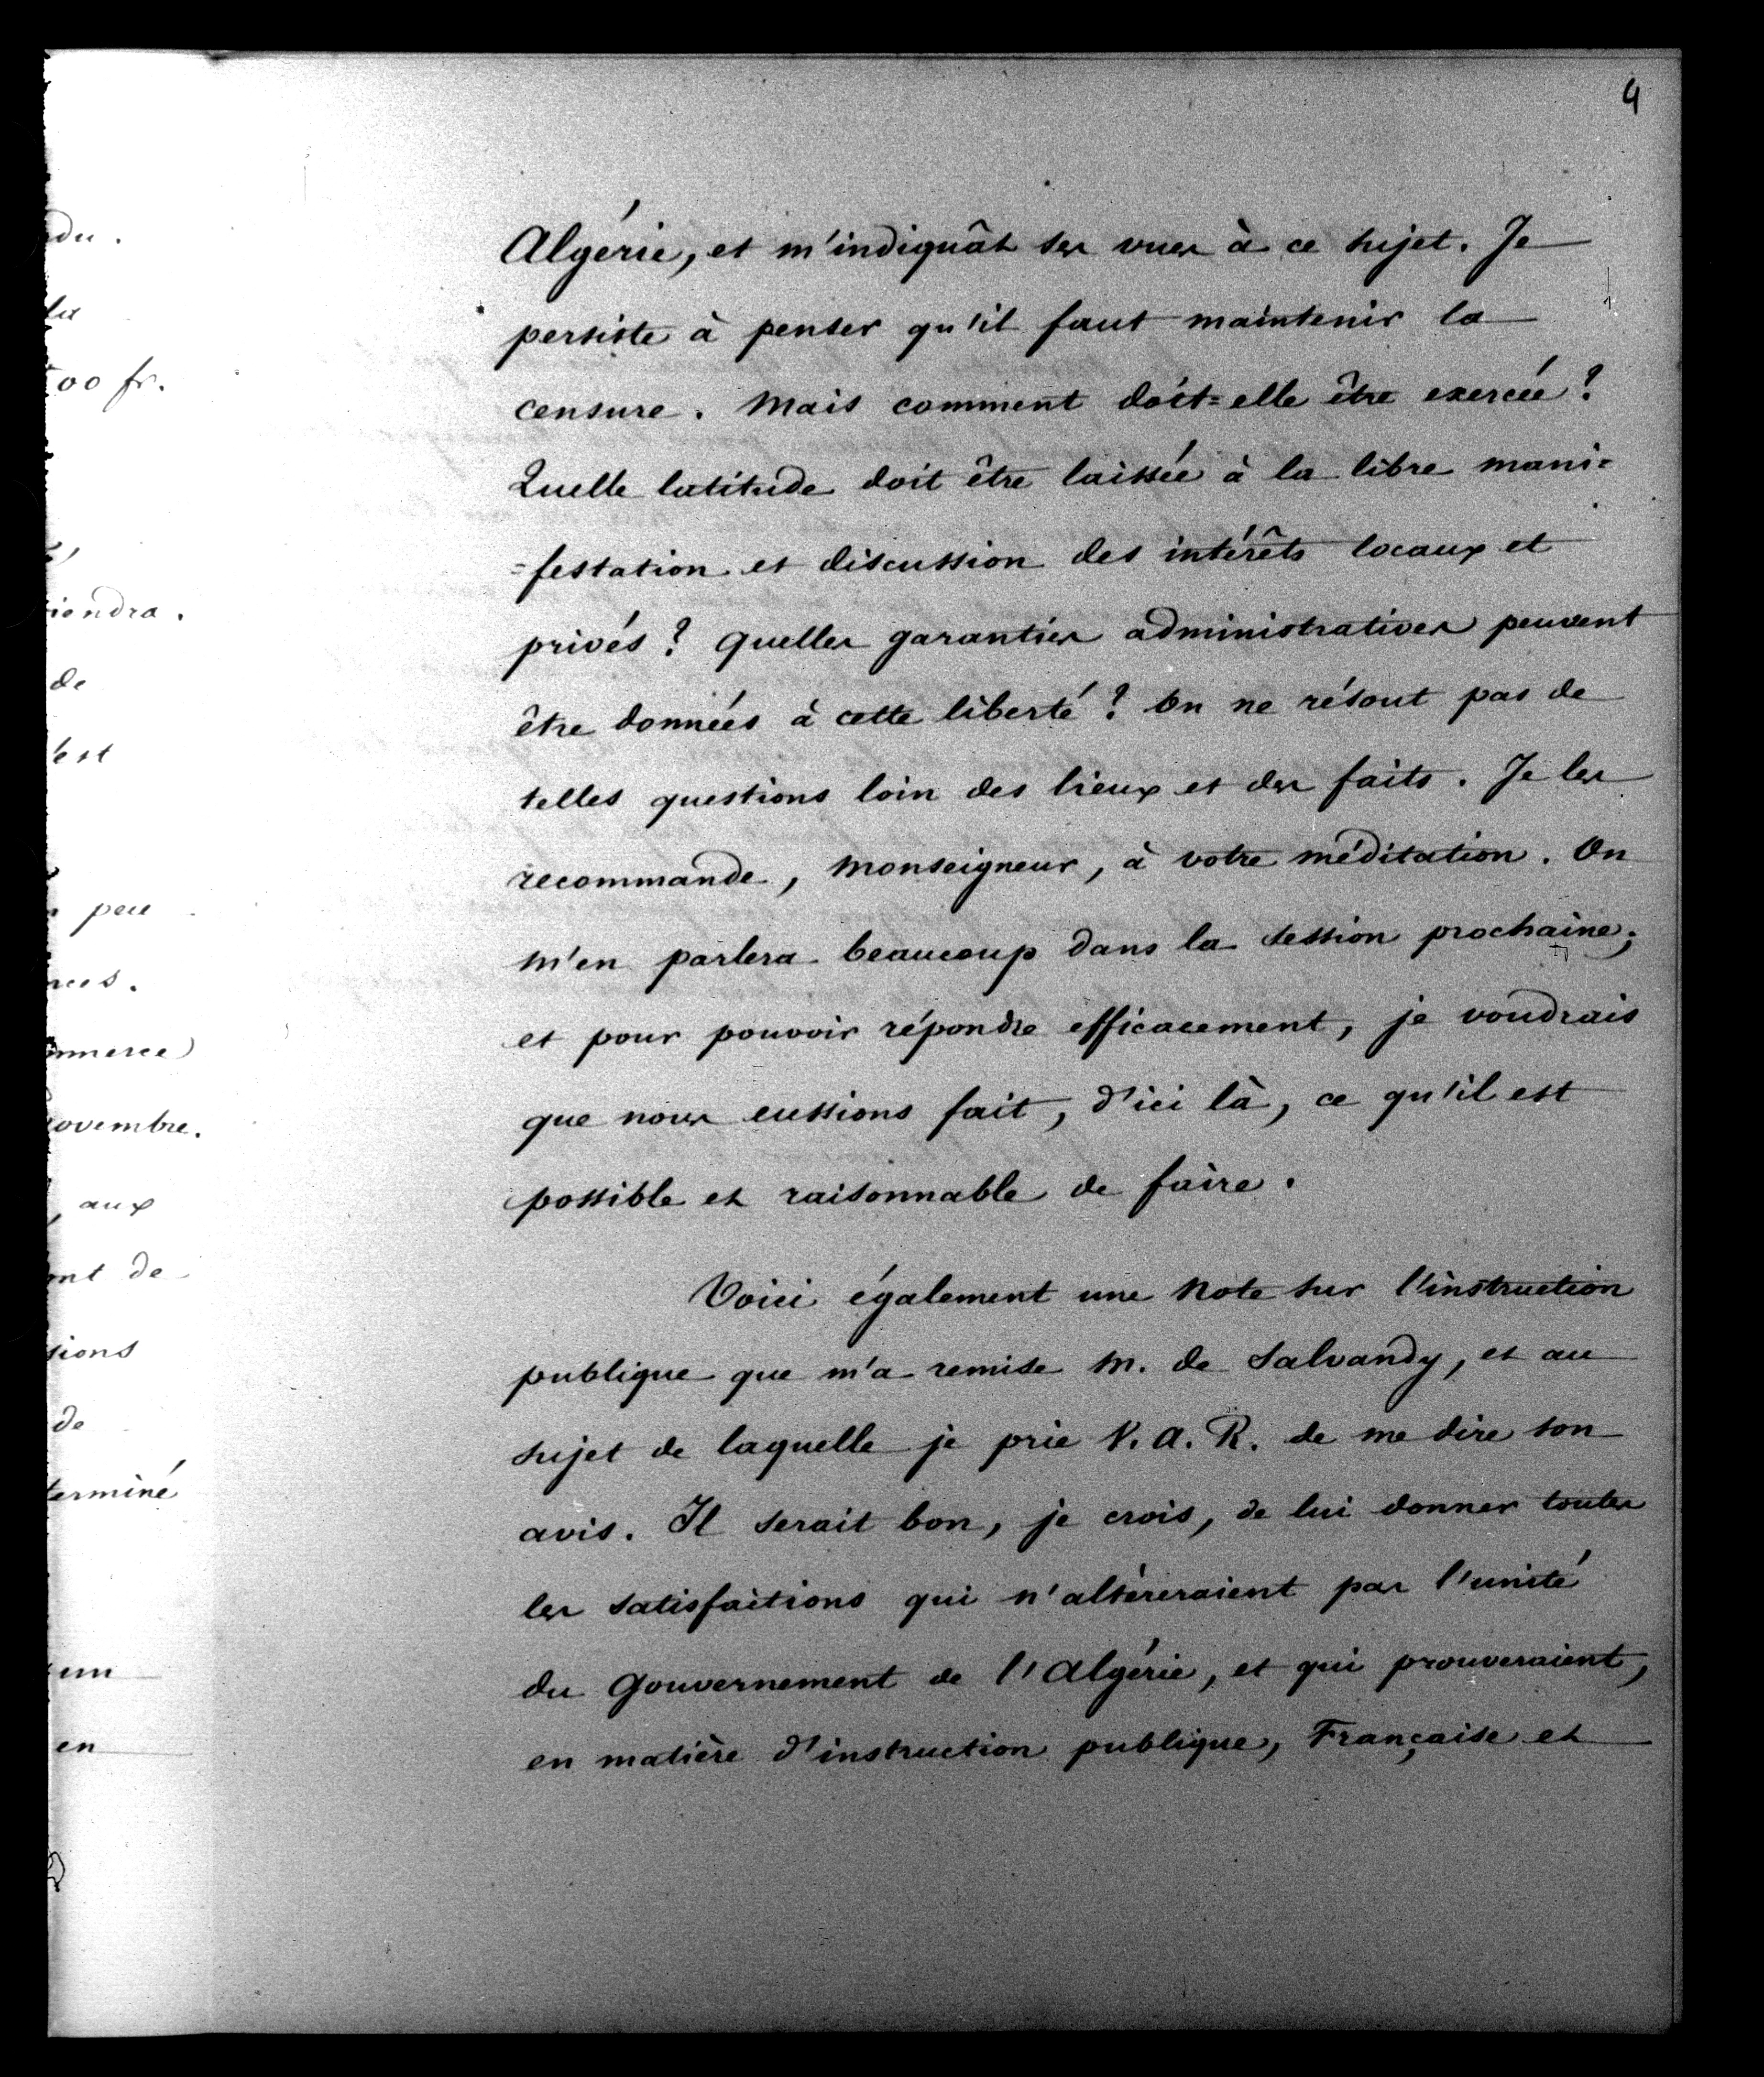 4
Algérie, et m'indiquât ses vues à ce sujet. Je
persiste à penser qu'il faut maintenir la
censure. Mais comment doit=elle être exercée?
Quelle latitude doit être laissée à la libre mani=
=festation et discussion des intérêts locaux et
privés? Quelles garanties administratives peuvent
être données à cette liberté? On ne résout pas de
telles questions loin des lieux et des faits. Je les
recommande, Monseigneur, à votre méditation. On
m'en parlera beaucoup dans la session prochaine;
et pour pouvoir répondre efficacement, je voudrais
que nous eussions fait, d'ici là, ce qu'il est
possible et raisonnable de faire.
Voici également une Note sur l'instruction
publique que m'a remise M. de Salvandy, et au
sujet de laquelle je prie V. A. R. de me dire son
avis. Il serait bon, je crois, de lui donner toutes
les satisfactions qui n'altéreraient pas l'unité
du Gouvernement de l'Algérie, et qui prouveraient,
en matière d'instruction publique, Française et
du.
la
00 fr.
iendra.
de
est
peu
ces.
mmerce)
ovembre.
aux
nt de
sions
de
terminé
un
en